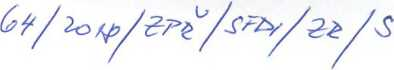 64/2018/ZPŘ/SFDI/ZR/S